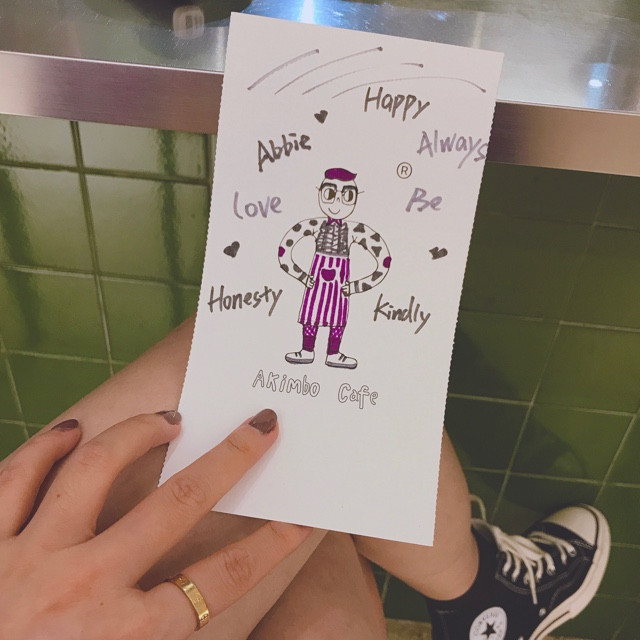 Happy
Abbie
Always
®
Love
Be
Honesty
Kindly
AKimbo Cafe